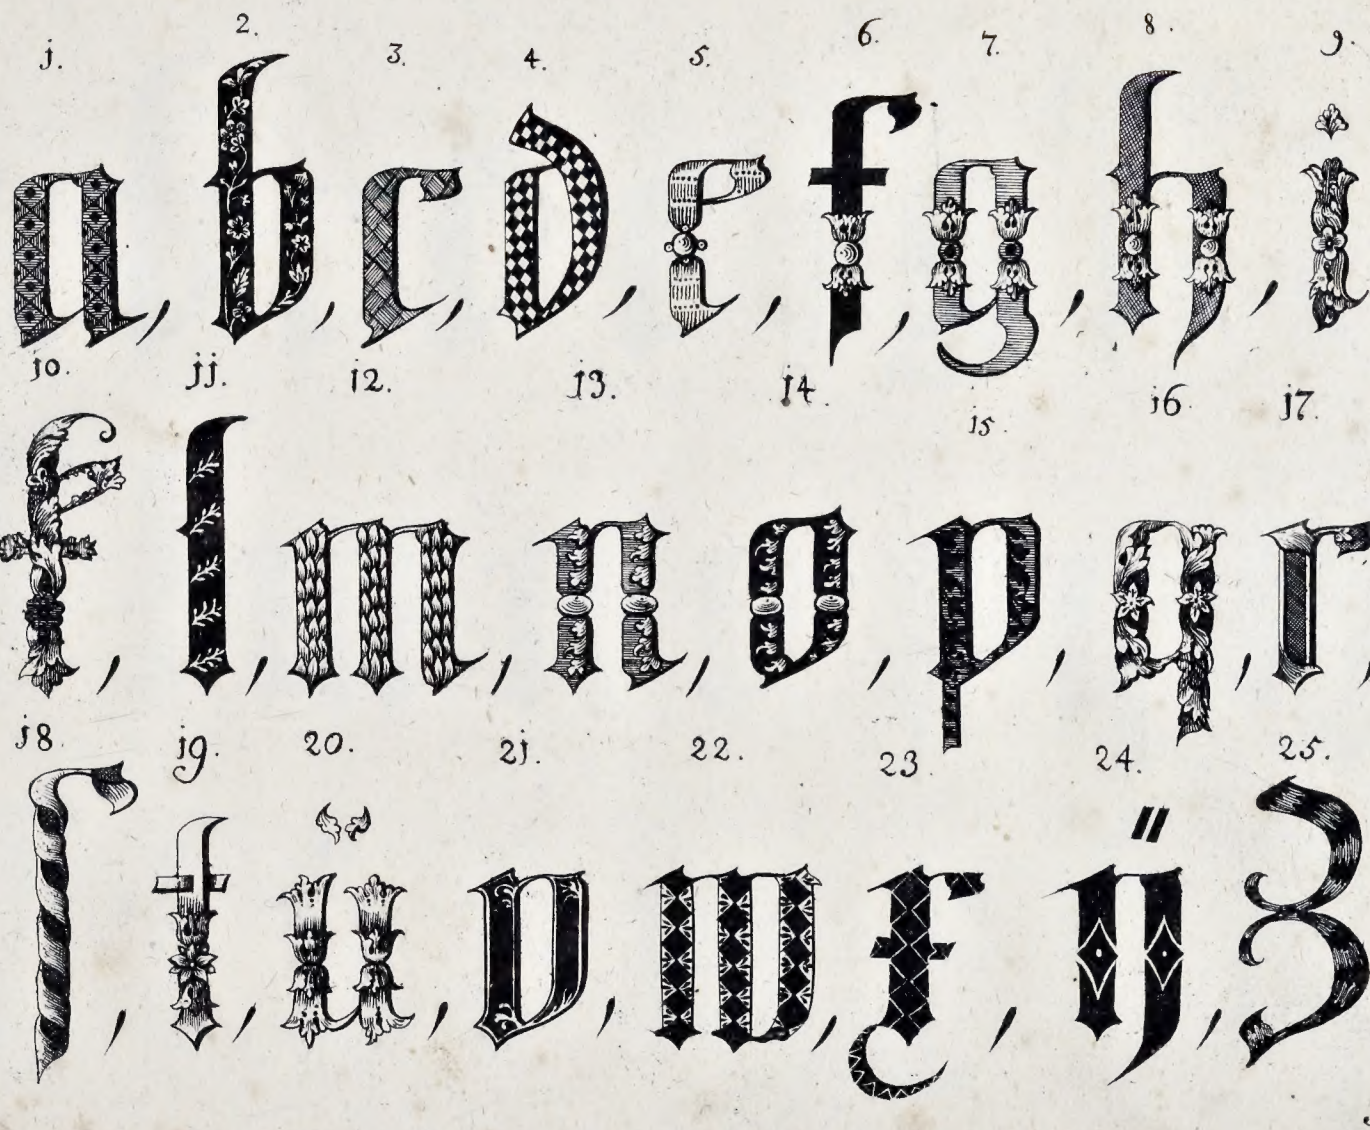 j. 2. 3. 4. 5. 6. 7. 8. 9.
a, b, c, d, e, f, g, h, i
jo. jj. j2. j3. j4. j5. j6. j7.
k, l, m, n, o, p, q, r,
j8. j9. 20. 2j. 22. 23. 24. 25.
ſ, t, ü, v, w, x, ÿ, z